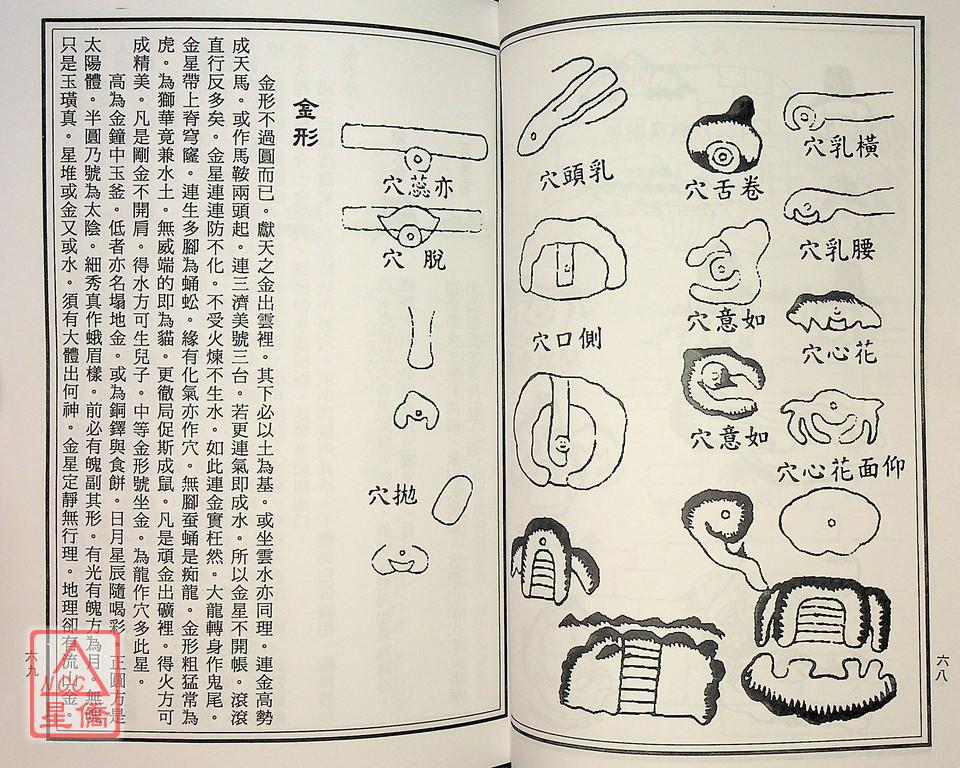 橫乳穴
腰乳穴
花心穴
仰面花心穴
卷舌穴
如意穴
如意穴
乳頭穴
側口穴
六八
亦蕊穴
脫穴
拋穴
金形
金形不過圓而已。獻天之金出雲裡。其下必以土為基。或坐雲水亦同理。連金高勢
成天馬。或作馬鞍兩頭起。連三濟美號三台。若更連氣即成水。所以金星不開帳。滾滾
直行反多矣。金星連連防不化。不受火煉不生水。如此連金實枉然。大龍轉身作鬼尾。
金星帶上脊穹窿。連生多腳為蛹蚣。緣有化氣亦作穴。無腳蚕蛹是痴龍。金形粗猛常為
虎。為獅華竟兼水土。無威端的即為貓。更徹局促斯成鼠。凡是頑金出礦裡。得火方可
成精美。凡是剛金不開肩。得水方可生兒子。中等金形號坐金。為龍作穴多此星。
高為金鐘中玉釜。低者亦名塌地金。或為銅鐸與食餅。日月星辰隨喝彩。正圓方是
太陽體。半圓乃號為太陰。細秀真作蛾眉樣。前必有魄副其形。有光有魄方為月。無魄
只是玉璜真。星堆或金又或水。須有大體出何神。金星定靜無行理。地理卻有流山金。
六九
NCC
星僑